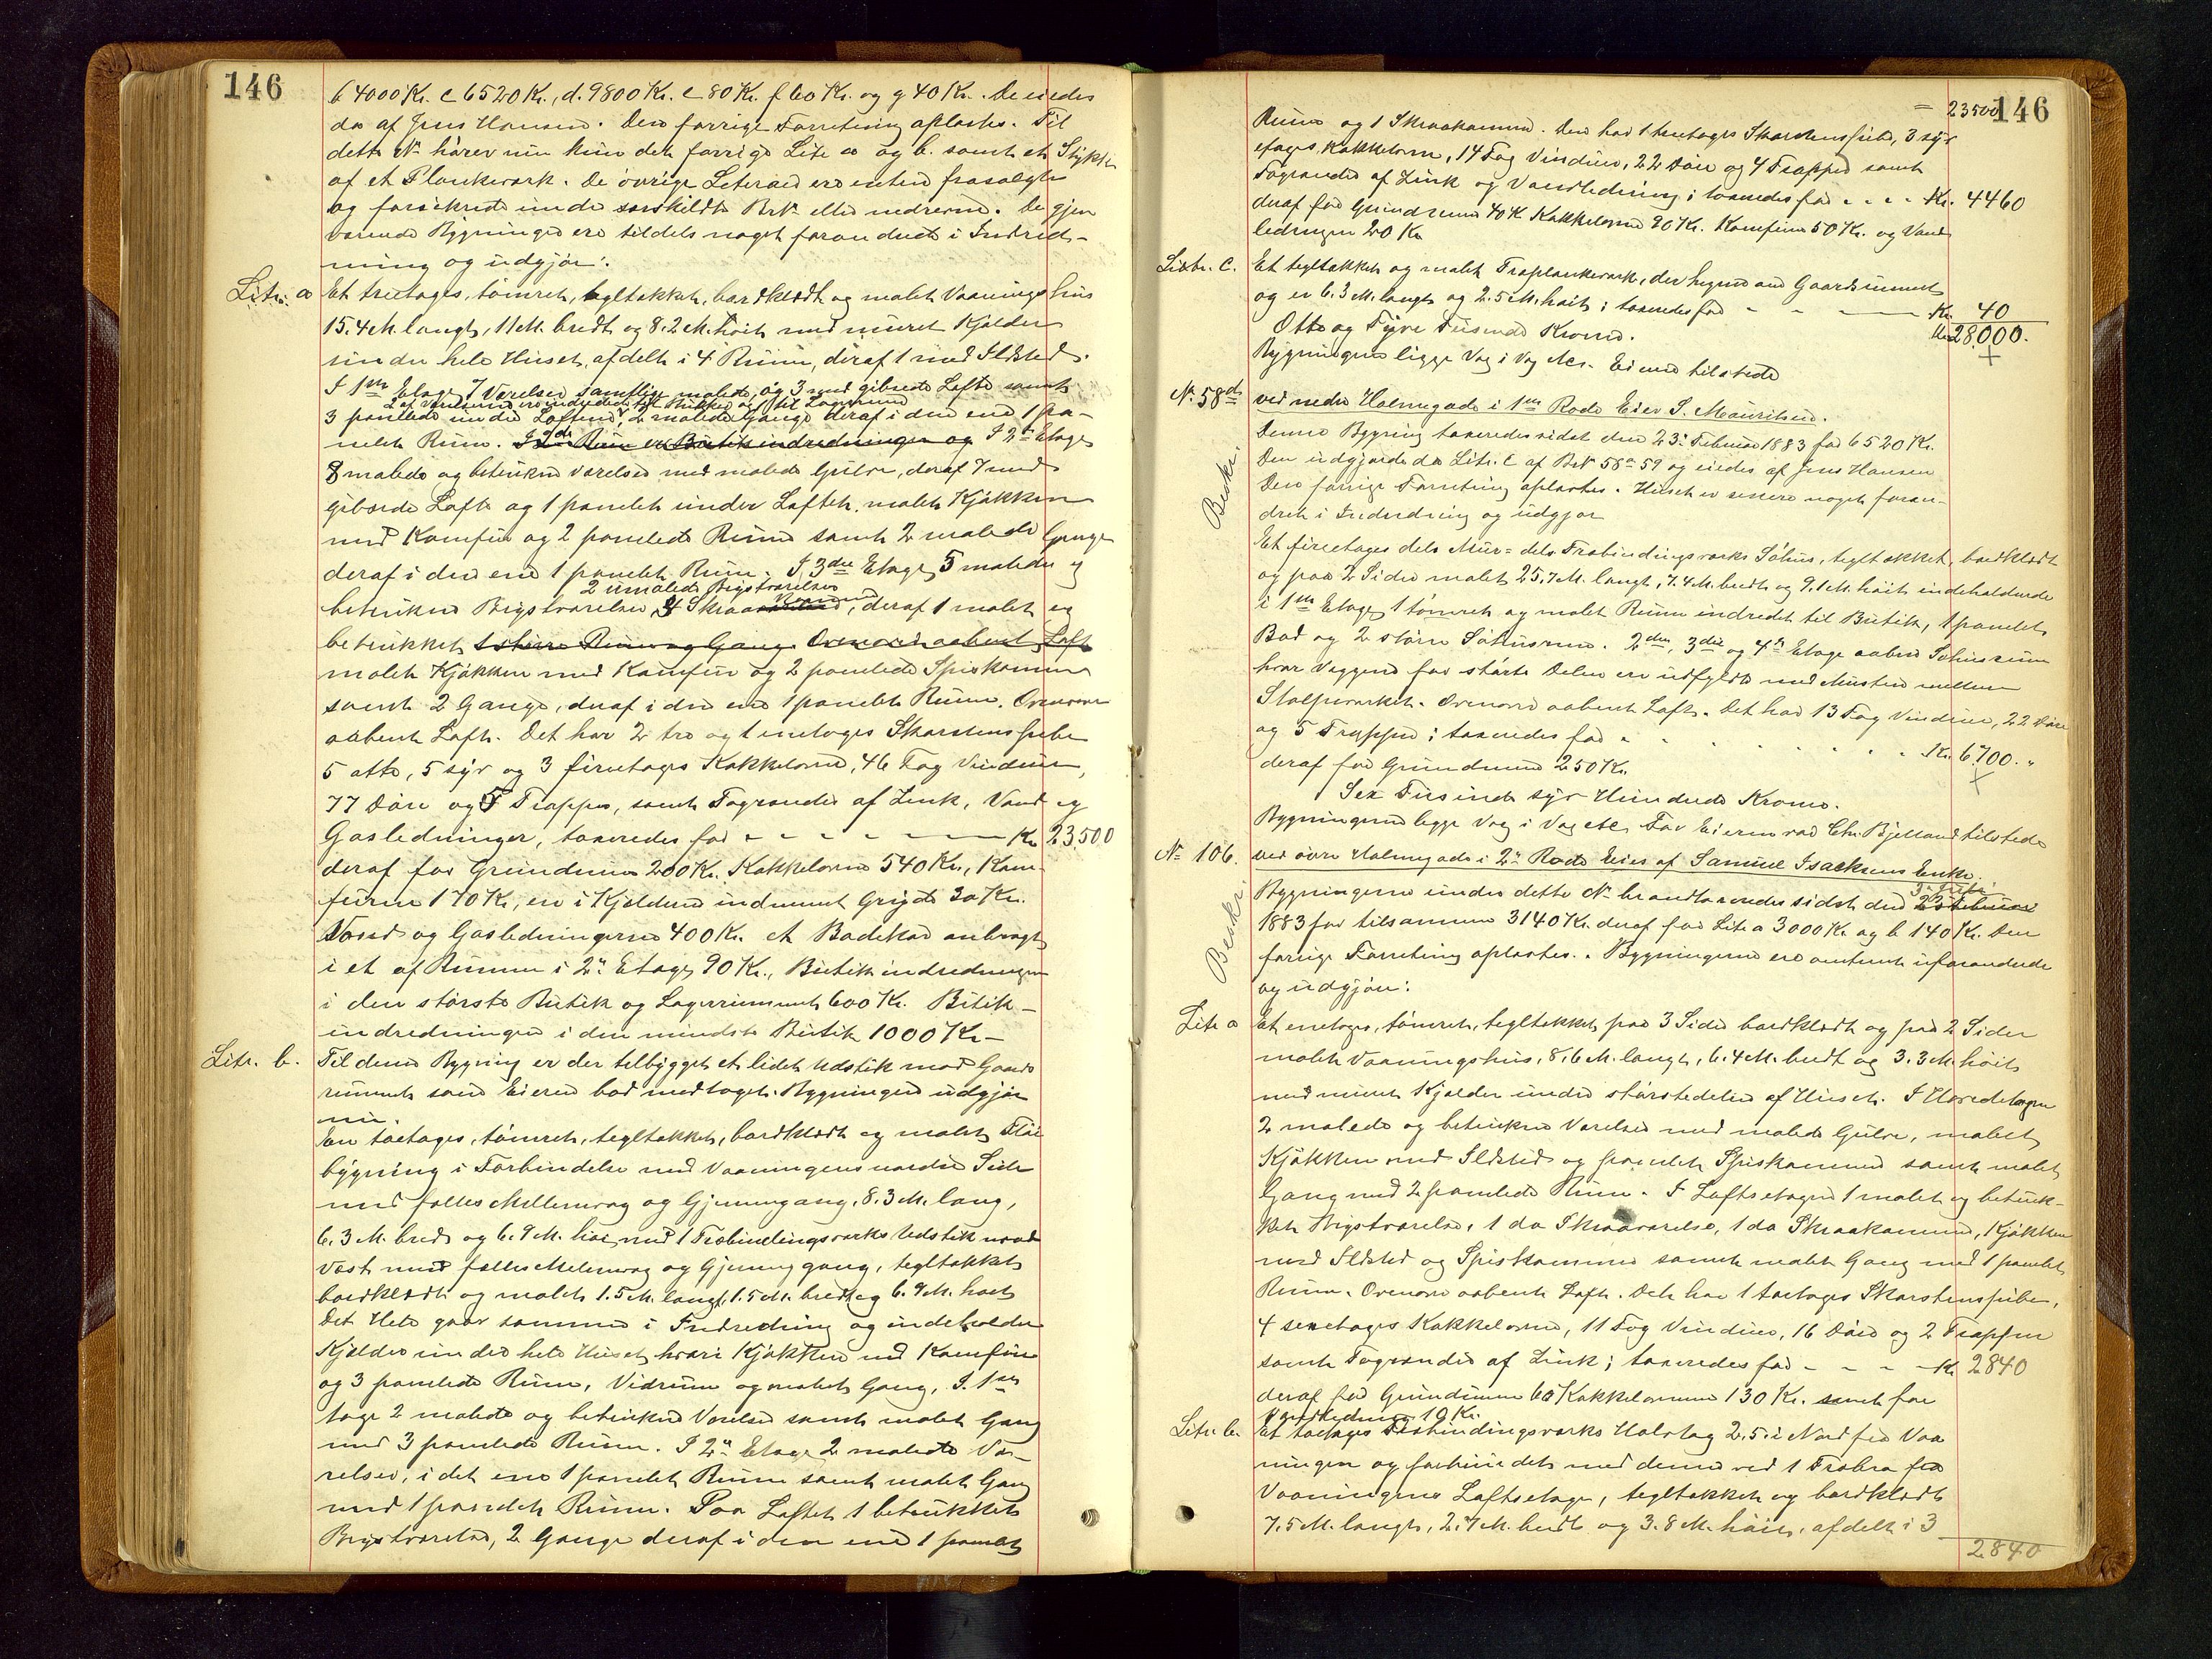 146
b 4000 Kr. c 6520 Kr., d. 9800 Kr. e 80 Kr. f 60 Kr. og g 40 Kr. De eiedes
da af Jens Hansen. Den forrige Forretning aflæstes. Til
dette No hörer nu kun det forrige Litr a og b. samt et Stykke
af et Plankeværk. De övrige Litraer ere enten frasolgte
og forsikrede under særskildte BrN. eller nedrevne. De gjen
værende Bygninger ere tildels noget forandrede i Indred-
ning og udgjör:
Litr. a Et treetages, tömret, tegltækket, bordklædt og malet Vaaningshus
15.4 M. langt, 11 M. bredt og 8.2 M. höit med muret Kjælder
under hele Huset, afdelt i 4 Rum, deraf 1 med Ildsted.
I 1ste Etage 7 Værelser samtlige malede, og 3 med gibsede Lofte samt
2 af Værelserne ere indredede til Butikker og 1 til Lagerrum
3 panelede under Lofterne, 2 malede Gange deraf i den ene 1 pa-
nelet Rum. I 2de Rum er Butikindredninger og I 2den Etage
8 malede og betrukne Værelser med malede Gulve, deraf 7 med
gibsede Lofte og 1 panelet under Loftet, malet Kjökken
med Komfur og 2 panelede Rum samt 2 malede Gange
deraf i den ene 1 panelet Rum. I 3die Etage 5 malede og
2 umalede Bigstværelser
betrukne Bigstværelser, 4 Skraakammere, deraf 1 malet og
betrukket 1 större Rum og Gang. Ovenover aabent Loft
malet Kjökken med Komfur og 2 panelede Spiskammer
samt 2 Gange, deraf i den ene 1 panelet Rum. Ovenover
aabent Loft. Det har 2 tre og 1 enetages Skorstenspibe
5 otte, 5 syv og 3 fireetages Kakkelovne, 46 Fag Vinduer,
77 Döre og 5 Trapper, samt Tagrender af Zink, Vand og
Gasledninger, taxeredes for - - - - - - Kr 23500
deraf for Grundmur 200 Kr. Kakkelovne 540 Kr., Kom-
furene 170 Kr., en i Kjælderen indmuret Gryde 30 Kr.
Vand og Gasledningerne 400 Kr. et Badekar anbragt
i et af Rummene i 2n Etage 90 Kr., Butikindredningen
i den störste Butik og Lagerrummet 600 Kr. Butik-
indredningen i den mindste Butik 1000 Kr-
Litr. b. Til denne Bygning er der tilbygget et lidet Udstik mod Gaards
rummet som Eieren bad medtaget. Bygningen udgjör
nu.
En toetages, tömret, tegltækket, bordklædt og malet Flöi
bygning i Forbindelse med Vaaningens nordre Side
med fælles Mellemvæg og Gjennemgang, 8.3 M. lang,
6.3 M. bred og 6.9 M. höi, med 1 Træbindingsværks Udstik mod
Vest med fælles Mellemvæg og Gjennemgang, tegltækket
bordklædt og malet 1.5 M. langt, 1.5 M. bredt og 6.9 M. höit
Det Hele gaar sammen i Indredning og indeholder
Kjælder under hele Huset hvori Kjökken med Komfur
og 3 panelede Rum, Vidrum og malet Gang, I 1ste
tage 2 malede og betrukne Værelser samt malet Gang
med 3 panelede Rum. I 2n Etage 2 malede Væ-
relser, i det ene 1 panelet Rum samt malet Gang
med 1 panelet Rum. Paa Loftet 1 betrukket
Bigstværelse, 2 Gange deraf i den ene 1 panelet
146
= 23500
Rum og 1 Skraakammer. Den har 1 treetages Skorstenspibe, 3 syv
etages Kakkelovne, 14 Fag Vinduer, 22 Döre og 4 Trapper samt
Tagrender af Zink og Vandledning; taxeredes for - - - - Kr. 4460
deraf for Grundmur 40 Kr. Kakkelovne 90 Kr. Komfuren 50 Kr. og Vand
ledningen 20 Kr
Litr. C. Et tegltækket og malet Træplankeværk, der hegner om Gaardsrummet
og er 6.3 M. langt og 2.5 M. höit; taxeredes for - - - Kr. 40
Otte og Tyve Tusende Kroner. Kr 28,000.
Bygningerne ligge Væg i Væg etc. Eieren tilstede
No. 58d ved nedre Holmegade i 1ste Rode Eier S. Mauritzen.
Beskr.
Denne Bygning taxeredes sidst den 23. Februar 1883 for 6520 Kr.
Den udgjorde da Litr. C af BrN 58a 59 og eiedes af Jens Hansen
Den forrige Forretning aflæstes. Huset er senere noget foran-
dret i Indredning og udgjör
Et fireetages dels Mur- dels Træbindingsværks Söhus, tegltækket, bordklædt
og paa 2 Sider malet, 25,7 M. langt, 7.4 M. bredt og 9,1 M. höit indeholdende
i 1ste Etage 1 tömret og malet Rum indredet til Butik, 1 panelet
Bod og 2 större Söhusrum. 2den, 3die og 4de Etage aabne Söhusrum
hvor Væggene for störste Delen ere udfyldte med Mursten mellem
Stolpeværket. Ovenover aabent Loft. Det har 13 Fag Vinduer, 22 Döre
og 5 Trapper; taxeredes for - - - - - - Kr. 6,700. "
deraf for Grundmur 250 Kr.
Sex Tusinde syv Hundrede Kroner.
Bygningerne ligge Væg i Væg etc. For Eieren var Chr. Bjelland tilstede
No 106. ved övre Holmegade i 2n Rode Eies af Samuel Isachsens Enke.
Beskr.
Bygningerne under dette No brandtaxeredes sidst den 23 Februar
1883 for tilsammen 3140 Kr. deraf for Litr a 3000 Kr. og b 140 Kr. Den
forrige Forretning aflæstes. Bygningerne ere omtrent uforandrede
og udgjör:
Litr a Et enetages, tömret, tegltækket paa 3 Sider bordklædt og paa 2 Sider
malet Vaaningshus, 8.6 M. langt, 6.4 M. bredt og 3.3 M. höit
med muret Kjælder under störstedelen af Huset. I Hovedetagen
2 malede og betrukne Værelser med malede Gulve, malet
Kjökken med Ildsted og panelet Spiskammer samt malet
Gang med 2 panelede Rum. I Loftsetagen 1 malet og betruk-
ket Bigstværelse, 1 do Skraaværelse, 1 do Skraakammer, Kjökken
med Ildsted og Spiskammer samt malet Gang med 1 panelet
Rum. Ovenover aabent Loft. Det har 1 toetages Skorstenspibe,
4 sexetages Kakkelovne, 11 Fag Vinduer, 16 Döre og 2 Trapper
samt Tagrender af Zink; taxeredes for - - - - Kr. 2840
deraf for Grundmuren 60 Kakkelovnene 130 Kr. samt for
Vandledning 10 Kr.
Litr. b. Et toetages Træbindingsværks Halvtag 2.5. i Nord fra Vaa
ningen og forbundet med denne ved 1 Træbro fra
Vaaningens Loftsetage, tegltækket og bordklædt
7.5 M. langt, 2.7 M. bredt og 3.8 M. höit, afdelt i 3
2840